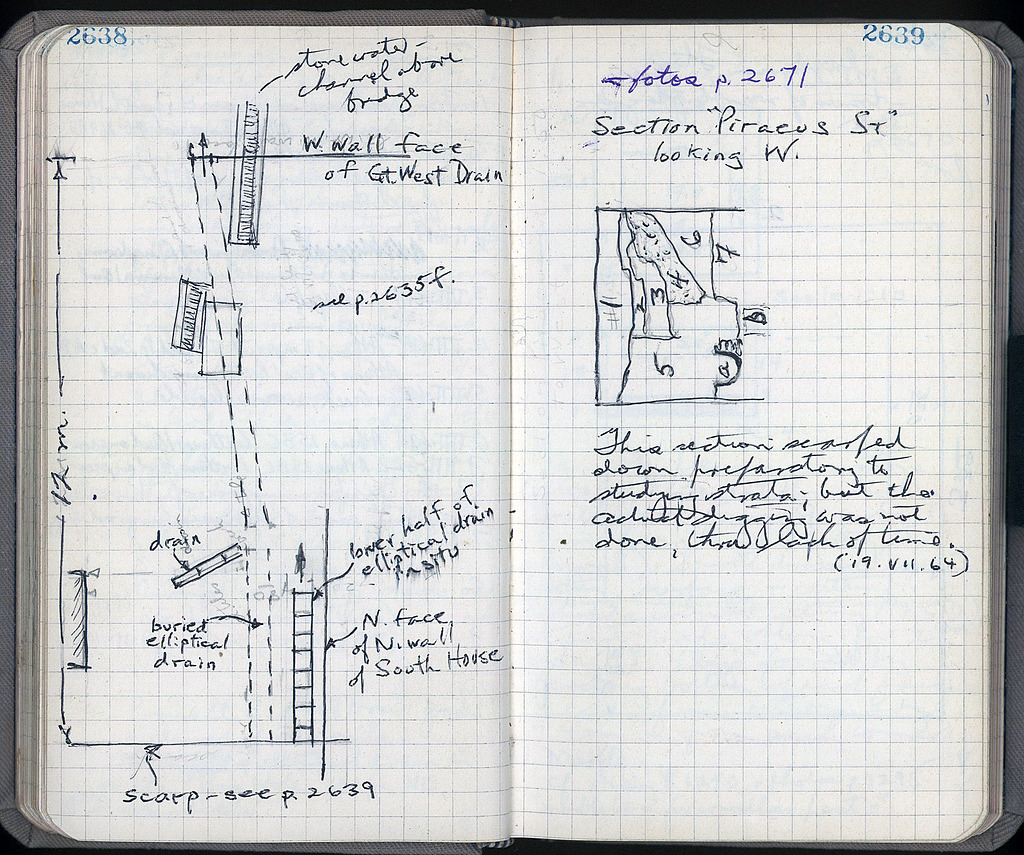 2638
stone water-
channel above
bridge
W. Wall face
of Gt. West Drain
see p. 2635 f.
12 m.
drain
lower half of
elliptical drain
in situ
buried
elliptical
drain
N. face
of N. wall
of South House
scarp - see p. 2639
2639
fotos p. 2671
Section "Piraeus St"
looking W.
#1
2
3
4
5
6
7
a
b
This section scarfed
down preparatory to
studying strata; but the
actual digging was not
done, thro lack of time.
(19.VII.64)